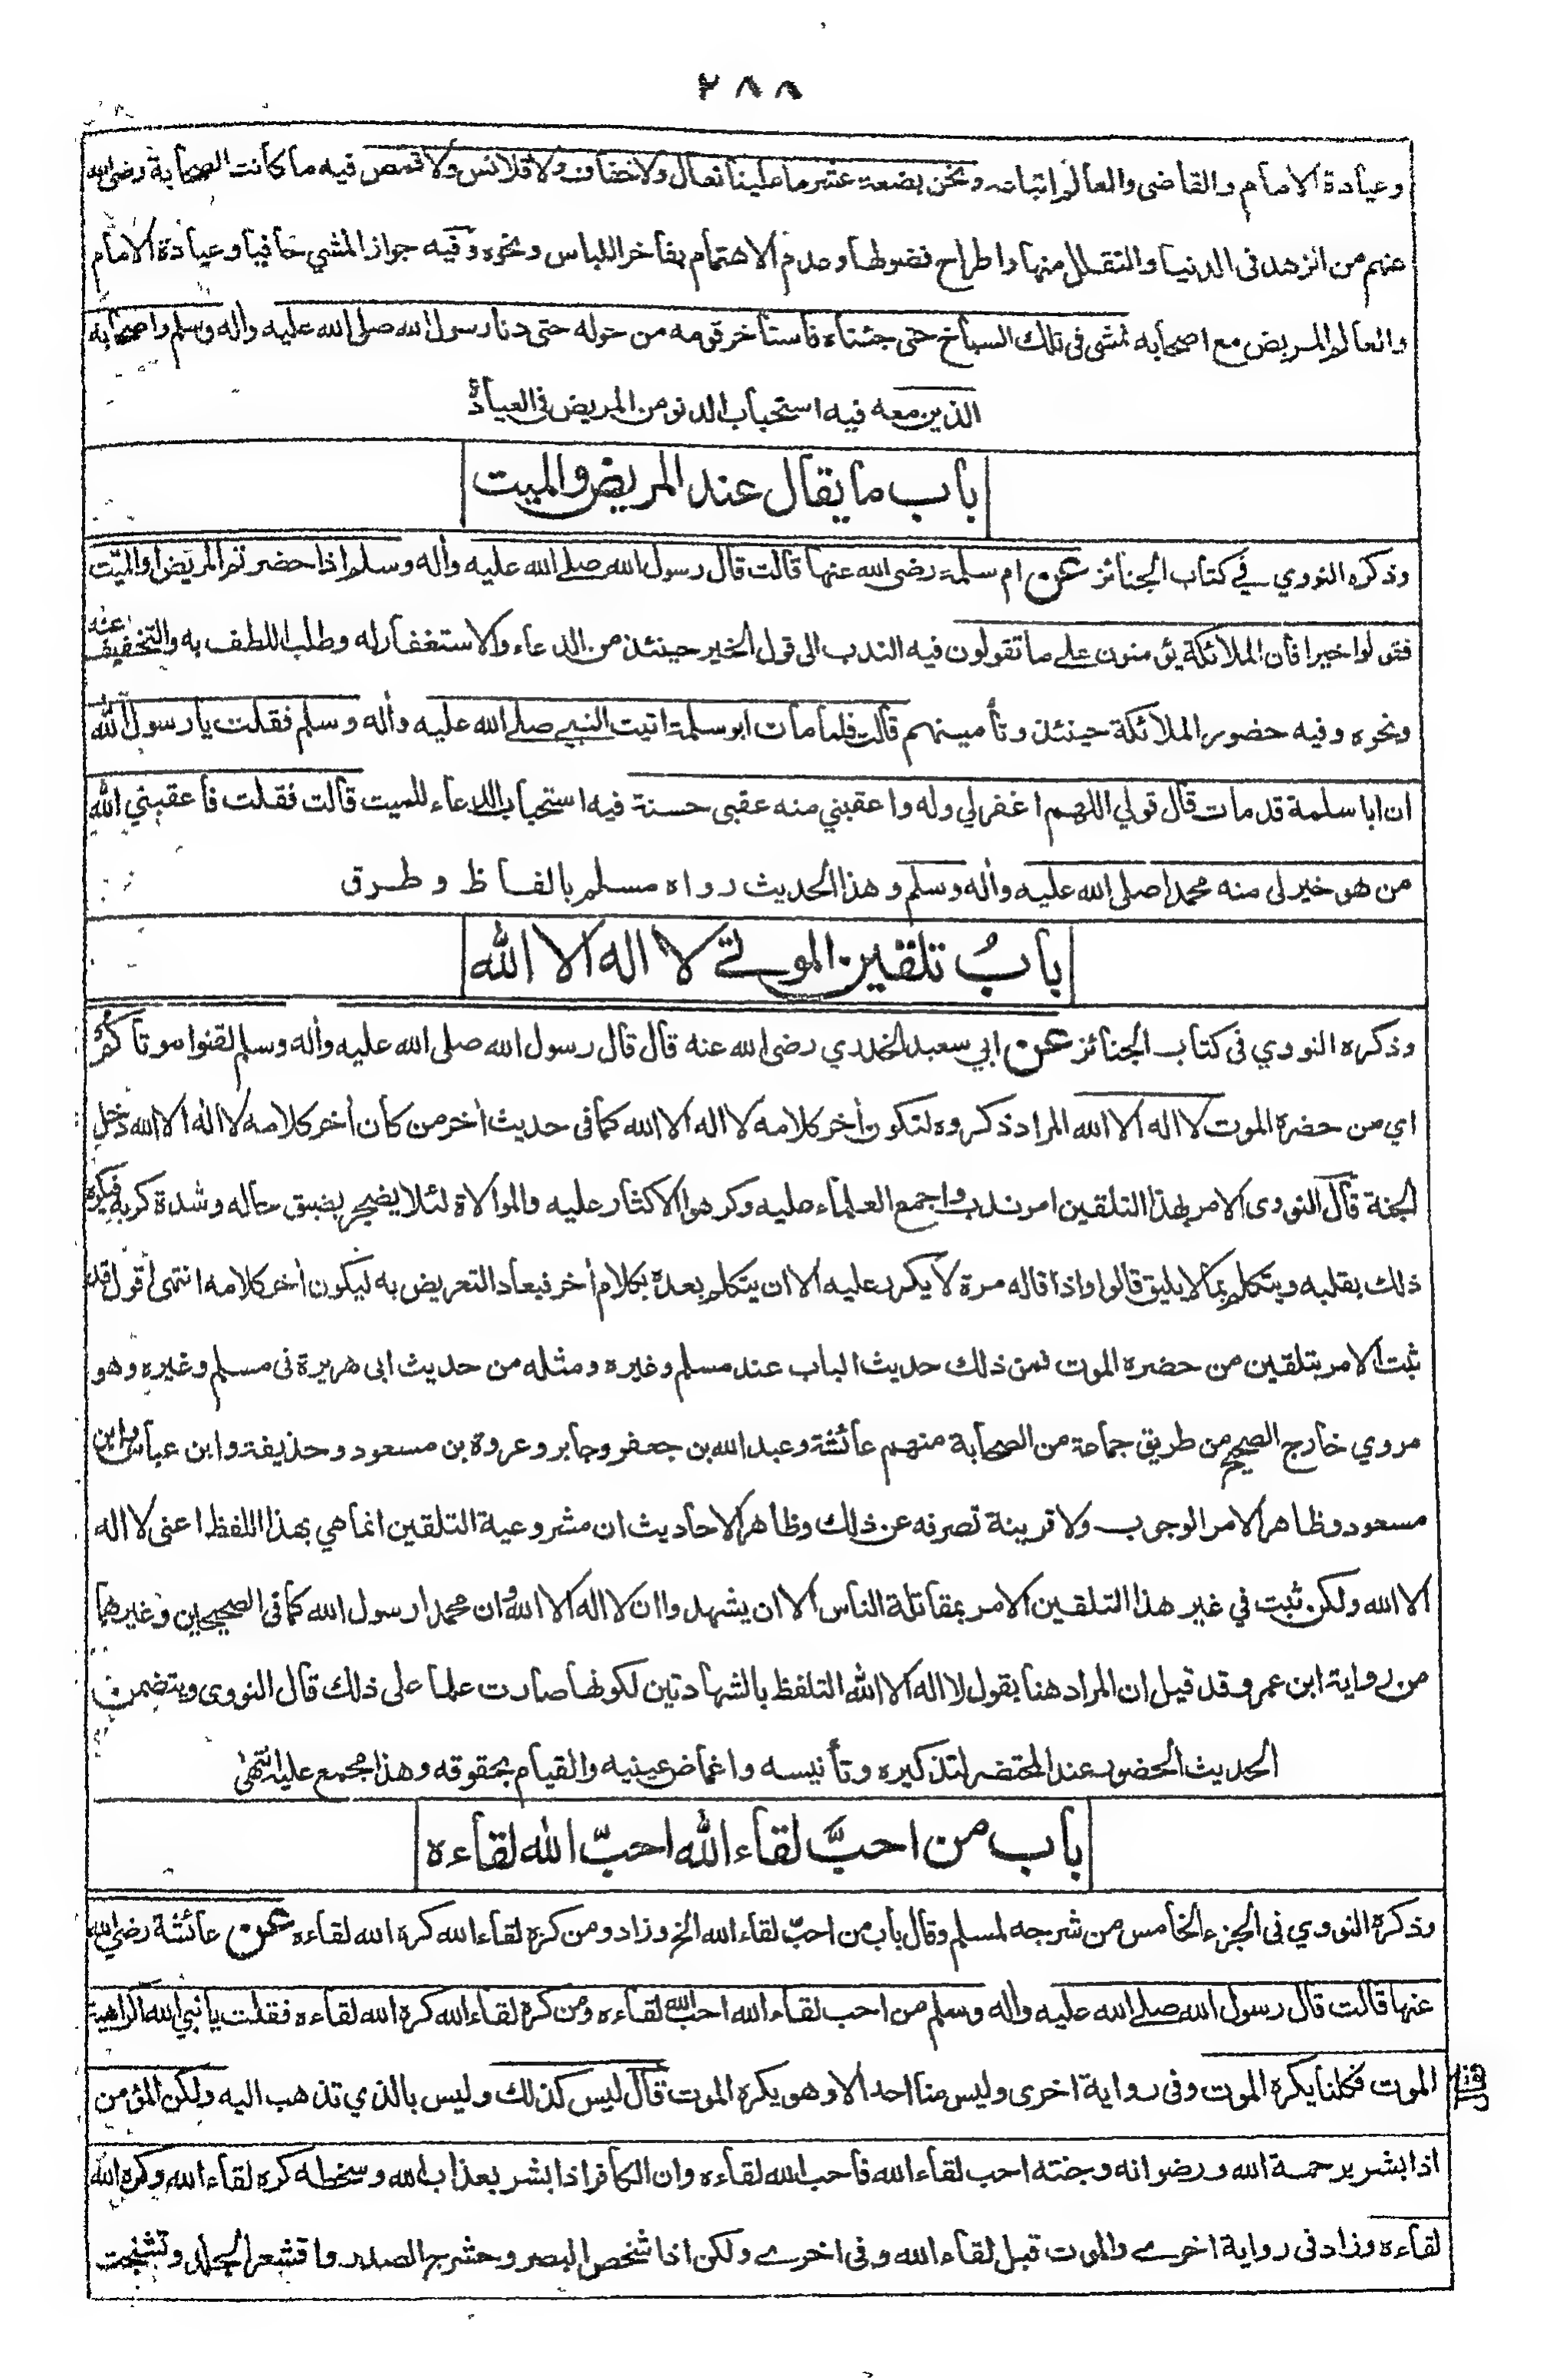 ٢٨٨
وعيادة الامام والقاضى والعالم اتباعه ونحن بضعة عشر ما علينا نعال ولا خفاف ولا قلانس ولا قمص فيه ما كانت الصحابة رضى الله
عنهم من الزهد فى الدنيا والتقلل منها واطراح فضولها وعدم الاهتمام بفاخر اللباس ونحوه وفيه جواز المشي حافيا وعيادة الامام
والعالم المريض مع اصحابه نمشى فى تلك السباخ حتى جئناه فاستأخر قومه من حوله حتى دنا رسول الله صلى الله عليه وأله وسلم واصحابه
الذين معه فيه استحباب الدنو من المريض فى العيادة
باب ما يقال عند المريض والميت
وذكره النووي في كتاب الجنائز عن ام سلمة رضى الله عنها قالت قال رسول الله صلے الله عليه وأله وسلم اذا حضرتم المريض او الميّت
فقولوا خيرا فان الملائكة يؤمنون على ما تقولون فيه الندب الى قول الخير حينئذ من الدعاء والاستغفار له وطلب اللطف به والتخفيف عنه
ونحوه وفيه حضور الملائكة حينئذ وتأمينهم قالت فلما مات ابو سلمة اتيت النبي صلے الله عليه وأله وسلم فقلت يا رسول الله
ان ابا سلمة قد مات قال قولي اللهم اغفر لي وله واعقبني منه عقبى حسنة فيه استحباب الدعاء للميت قالت فقلت فأعقبني الله
من هو خير لى منه محمدا صلى الله عليه وأله وسلم وهذا الحديث رواه مسلم بالفاظ وطرق
بابُ تلقين الموتے لا اله الا الله
وذكره النووي فى كتاب الجنائز عن ابي سعيد الخدري رضى الله عنه قال قال رسول الله صلى الله عليه وأله وسلم لقنوا موتاكم
اي من حضره الموت لا اله الا الله المراد ذكروه لتكون أخر كلامه لا اله الا الله كما فى حديث أخر من كان أخر كلامه لا اله الا الله دخل
الجنة قال النووى الامر بهذا التلقين امر ندب واجمع العلماء عليه وكرهوا الاكثار عليه والموالاة لئلا يضجر بضيق حاله وشدة كربه فيكره
ذلك بقلبه ويتكلم بما لا يليق قالوا واذا قاله مرة لا يكرر عليه الا ان يتكلم بعده بكلام أخر فيعاد التعريض به ليكون أخر كلامه انتهى أقول قد
ثبت الامر بتلقين من حضره الموت فمن ذلك حديث الباب عند مسلم وغيره ومثله من حديث ابى هريرة فى مسلم وغيره وهو
مروي خارج الصحيح من طريق جماعة من الصحابة منهم عائشة وعبد الله بن جعفر وجابر وعروة بن مسعود وحذيفة وابن عباس وابن
مسعود وظاهر الامر الوجوب ولا قرينة تصرفه عن ذلك وظاهر الاحاديث ان مشروعية التلقين انما هي بهذا اللفظ اعنى لا اله
الا الله ولكن ثبت في غير هذا التلقين الامر بمقاتلة الناس الا ان يشهدوا ان لا اله الا الله وان محمدا رسول الله كما فى الصحيحين وغيرهما
من رواية ابن عمر وقد قيل ان المراد هنا بقول لا اله الا الله التلفظ بالشهادتين لكونها صارت علما على ذلك قال النووى ويتضمن
الحديث الحضور عند المحتضر لتذكيره وتأنيسه واغماض عينيه والقيام بحقوقه وهذا مجمع عليه انتهى
باب من احبَّ لقاء الله احبّ الله لقاءه
وذكره النووي فى الجزء الخامس من شرحه لمسلم وقال باب من احبّ لقاء الله الخ وزاد ومن كره لقاء الله كره الله لقاءه عن عائشة رضي الله
عنها قالت قال رسول الله صلے الله عليه وأله وسلم من احب لقاء الله احب الله لقاءه ومن كره لقاء الله كره الله لقاءه فقلت يا نبي الله اكراهية
الموت فكلنا يكره الموت وفى رواية اخرى وليس منا احد الا وهو يكره الموت قال ليس كذلك وليس بالذي تذهب اليه ولكن المؤمن
اذا بشر برحمة الله ورضوانه وجنته احب لقاء الله فاحب الله لقاءه وان الكافر اذا بشر بعذاب الله وسخطه كره لقاء الله وكره الله
لقاءه وزاد فى رواية اخرے والموت قبل لقاء الله وفى اخرے ولكن اذا شخص البصر وحشرج الصدر واقشعر الجلد وتشنجت